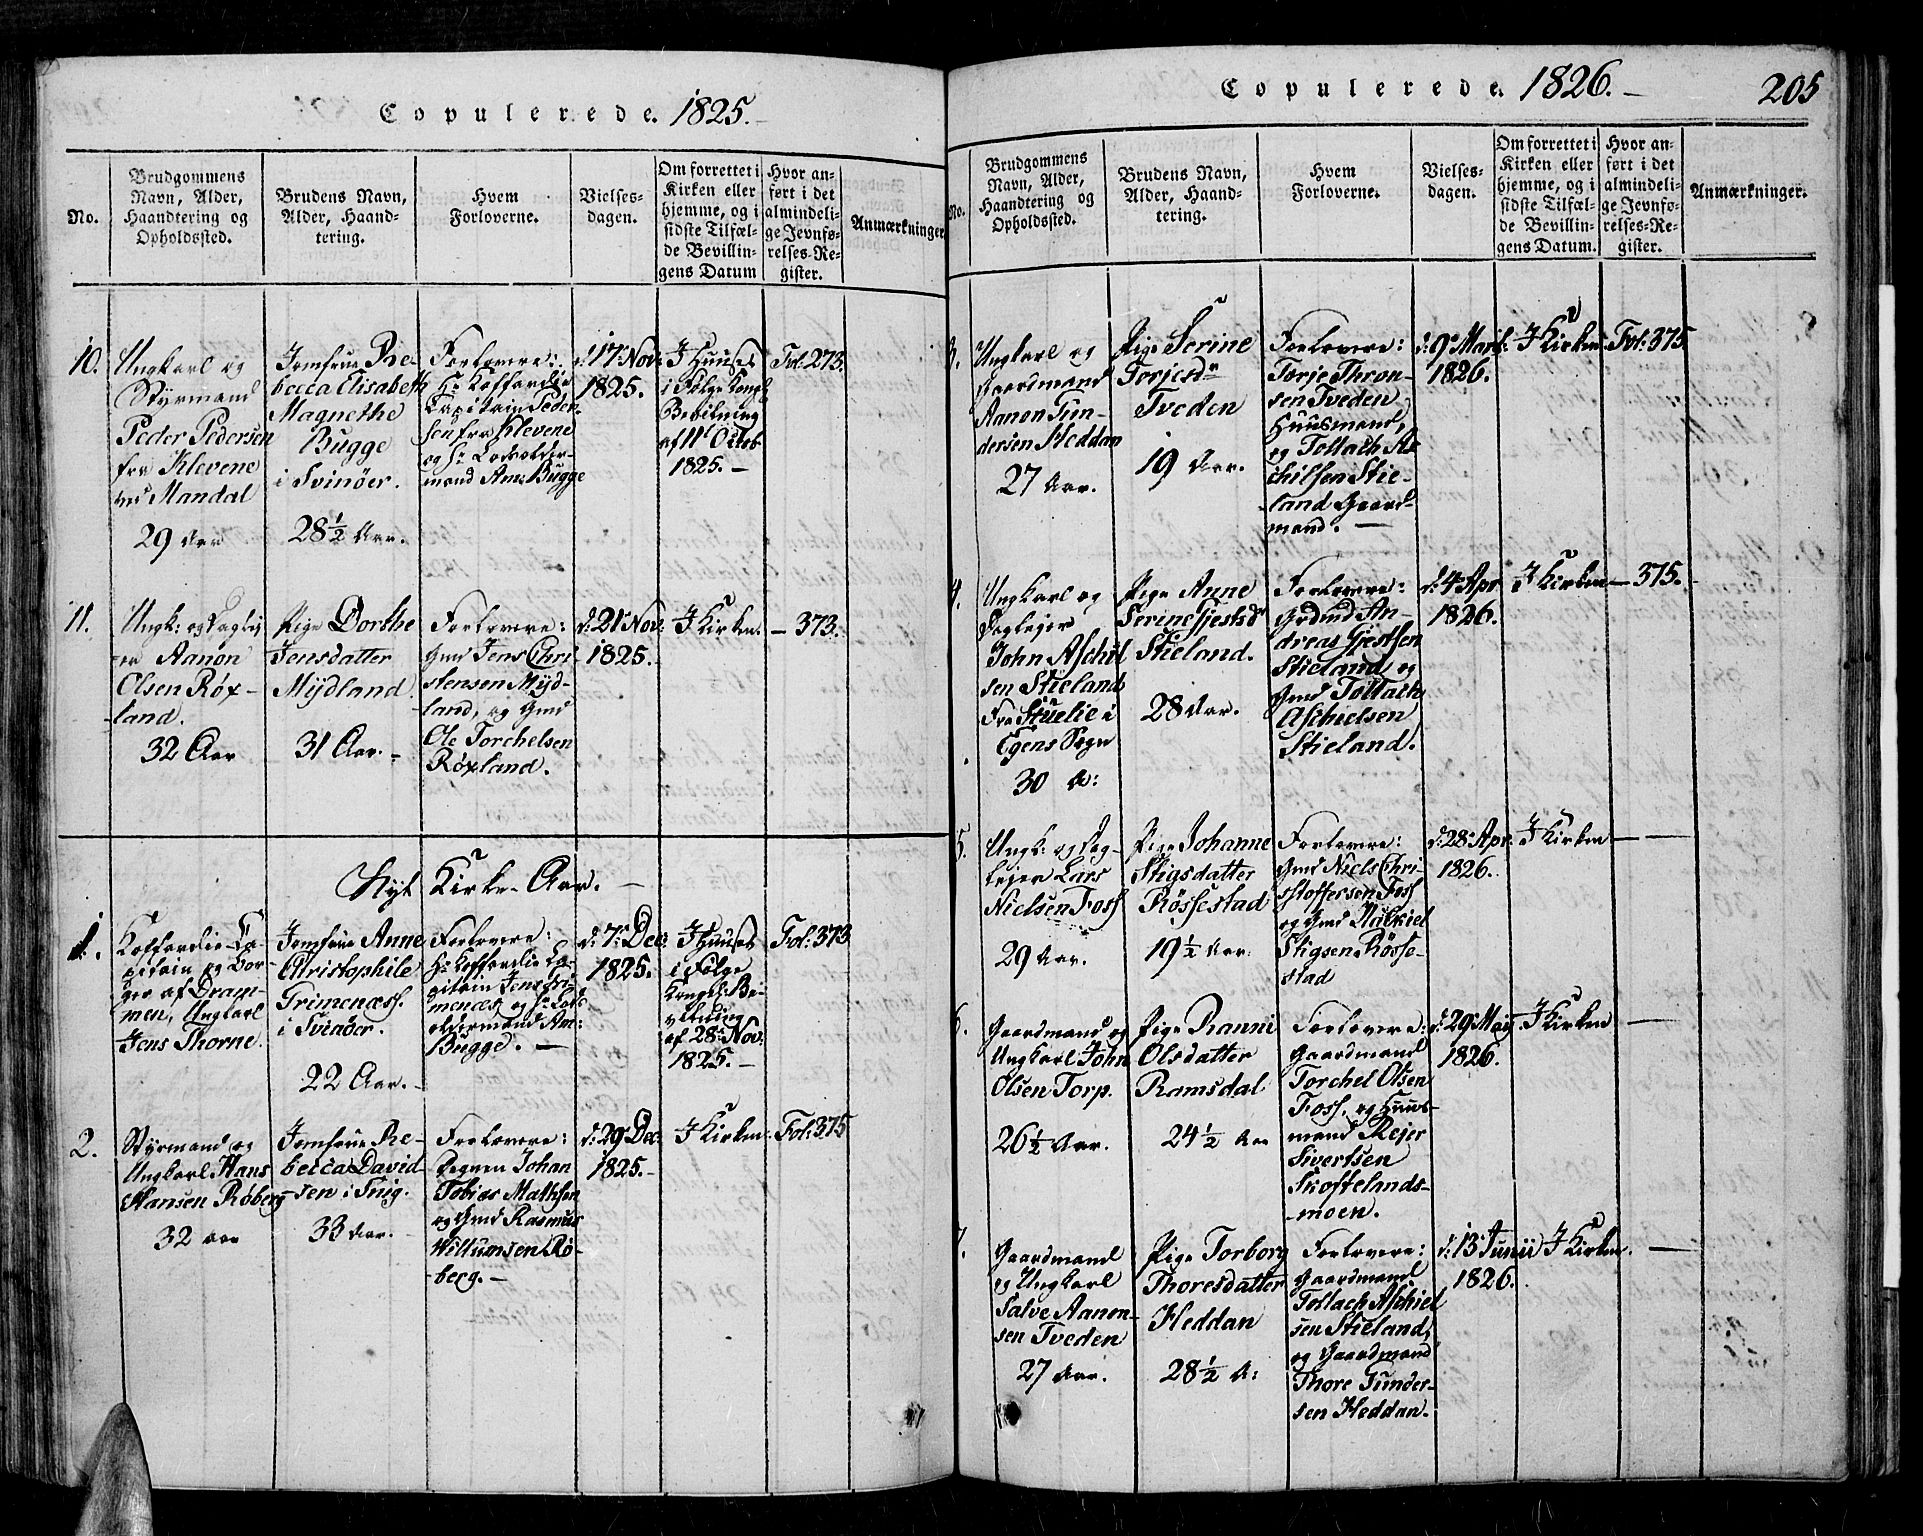 Copulerede. 1825.
No.
Brudgommens
Navn, Alder,
Haandtering og
Opholdssted.
Brudens Navn,
Alder, Haand-
tering.
Hvem
Forloverne.
Vielses-
dagen.
Om forrettet i
Kirken eller
hjemme, og i
sidste Tilfæl-
de Bevillin-
gens Datum
Hvor an-
ført i det
almindeli-
ge Jevnfø-
relses-Re-
gister.
Anmærkninger
10.
Ungkarl og
Styrmand
Peder Pedersen
fra Klevene
ved Mandal
29 Aar
Jomfrue Re-
becca Elisabeth
Magnethe
Bugge
i Svinøer.
28½ Aar.
Forlovere:
Hr Koffardie
Capitain Peder-
sen fra Klevene
og Hr Lodsolder-
mand Am: Bugge
d: 17 Nov:
1825.
I Huuset
i Følge Kongl:
Bevilning
af 11 Octob
1825. –
Fol: 273.
11.
Ungk: og Daglej
er Aanon
Olsen Røx-
land.
32 Aar
Pige Dorthe
Jensdatter
Mydland.
31 Aar. –
Forlovere:
Gmd Jens Chri-
stensen Myd-
land, og Gmd
Ole Torchelsen
Røxland.
d: 21 Nov:
1825.
I Kirken.
– 373.
Nyt Kirke-Aar. –
1.
Koffardie-Ca-
pitain og Bor-
ger af Dram-
men, Ungkarl
Jens Thorne.
Jomfrue Anne
Christophile
Grimenæss.
i Svinøer.
22 Aar. –
Forlovere:
Hr Koffardie Ca-
pitain Jens Gri-
menæs og Hr Lods
oldermand Am:
Bugge. –
d: 7 Dec:
1825.
I Huuset
i Følge
Kongel: Be-
vilning
af 28 Nov:
1825. –
Fol: 373
2.
Styrmand og
Ungkarl Hans
Hansen Røberg
32 aar
Jomfrue Re-
becca David-
sen i Snig.
33 Aar. –
Forlovere:
Degnen Johan
Tobias Mathsen
og Gmd Rasmus
Willumsen Rø-
berg. –
d: 29 Dec:
1825.
I Kirken.
Fol: 375
Copulerede. 1826. –
205
No.
Brudgommens
Navn, Alder,
Haandtering og
Opholdssted.
Brudens Navn,
Alder, Haand-
tering.
Hvem
Forloverne.
Vielses-
dagen.
Om forrettet i
Kirken eller
hjemme, og i
sidste Tilfæl-
de Bevillin-
gens Datum.
Hvor an-
ført i det
almindeli-
ge Jevnfø-
relses-Re-
gister.
Anmærkninger.
3.
Ungkarl og
Gaardmand
Aanon Gun-
dersen Heddan
27 Aar.
Pige Serine
Torjesdr
Tveden
19 Aar.
Forlovere:
Torje Thron-
sen Tveden
Huusmand,
og Tollach As-
chilsen Stie-
land Gaard-
mand. –
d: 9 Marts
1826.
I Kirken
Fol: 375.
4.
Ungkarl og
Daglejer
John Aschil
sen Stieland
Fra Stuelie i
Egens Sogn
30 A:
Pige Anne
Serine Gjestsdr
Stieland.
28 Aar.
Forlovere:
Grdmd An-
dreas Gjestsen
Stieland, og
Gmd Tollach
Aschielsen
Stieland.
d: 4 Apr
1826.
I Kirken
– 375.
5.
Ungk: og Dag-
lejer Lars
Nielsen Foss
29 Aar.
Pige Johanne
Stigsdatter
Røssestad
19½ Aar.
Forlovere:
Gmd Niels Chri-
stoffersen Foss
og Gmd
Stigsen Røsse-
stad
d: 28 Apr
1826.
I Kirken
6.
Gaardmand og
Ungkarl John
Olsen Torp.
26½ Aar.
Pige Ranni
Olsdatter
Ramsdal
24½ Aar
Forlovere:
Gaardmand
Torchel Olsen
Foss, og Huus-
mand Rejer
Sivertsen
Skoftelands-
moen.
d: 29 Maij
1826.
I Kirken
7.
Gaardmand
og Ungkarl
Salve Aanon-
sen Tveden
27 Aar.
Pige Torborg
Thoresdatter
Heddan
28½ A:
Forlovere:
Gaardmand
Tollach Aschiel
sen Stieland,
og Gaardmand
Thore Gunder-
sen Heddan.
d: 13 Junii
1826.
I Kirken.